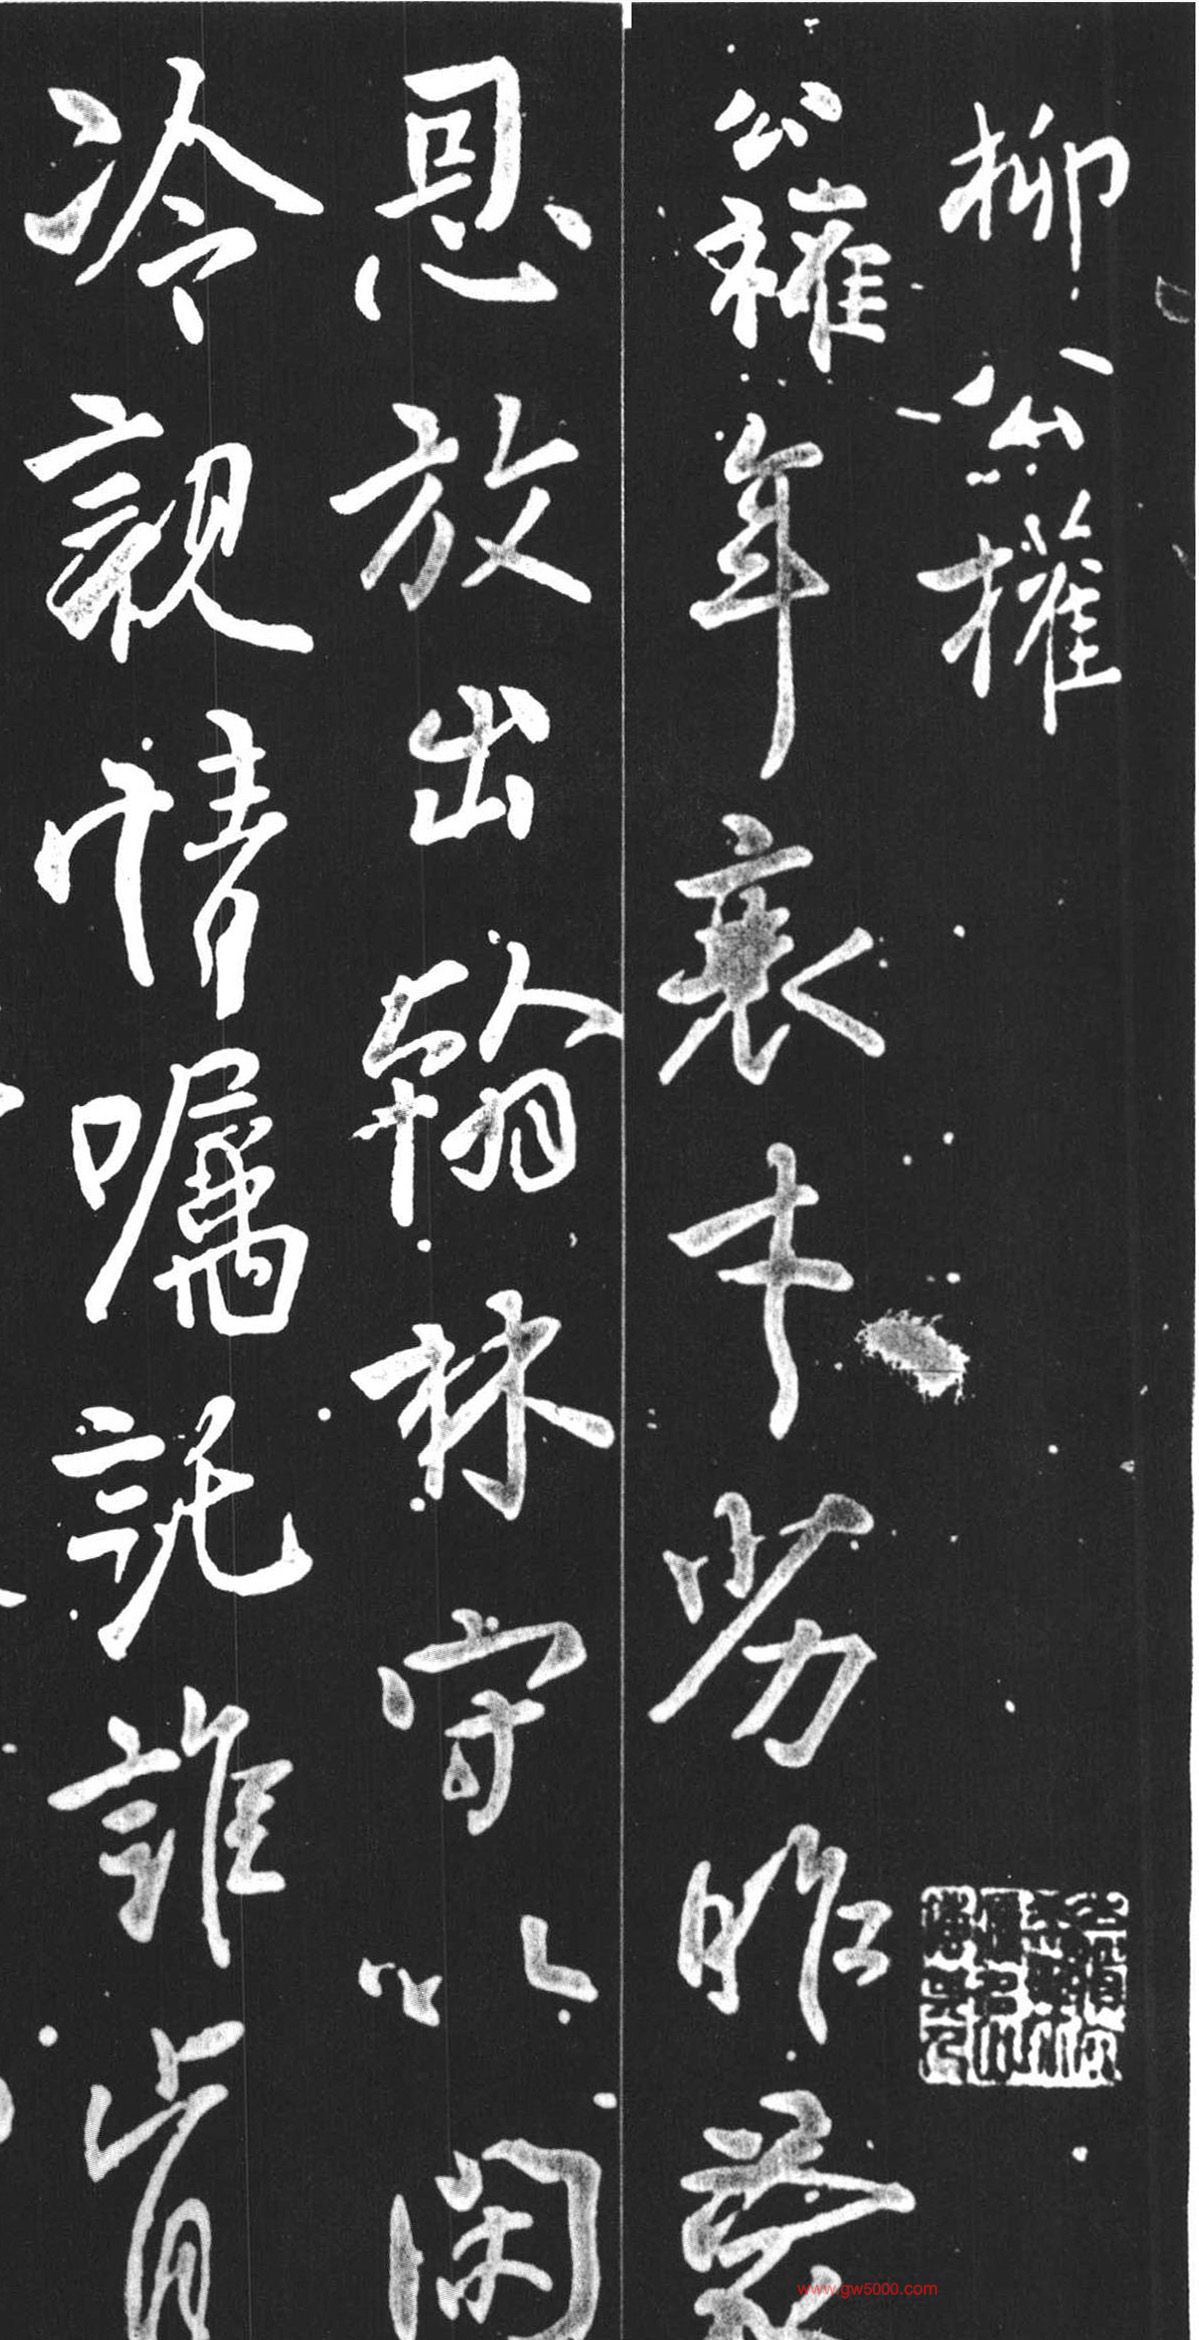 柳公權
公權年衰才劣昨蒙
恩放出翰林守以閑
冷親情囑託誰肯
www.gw5000.com